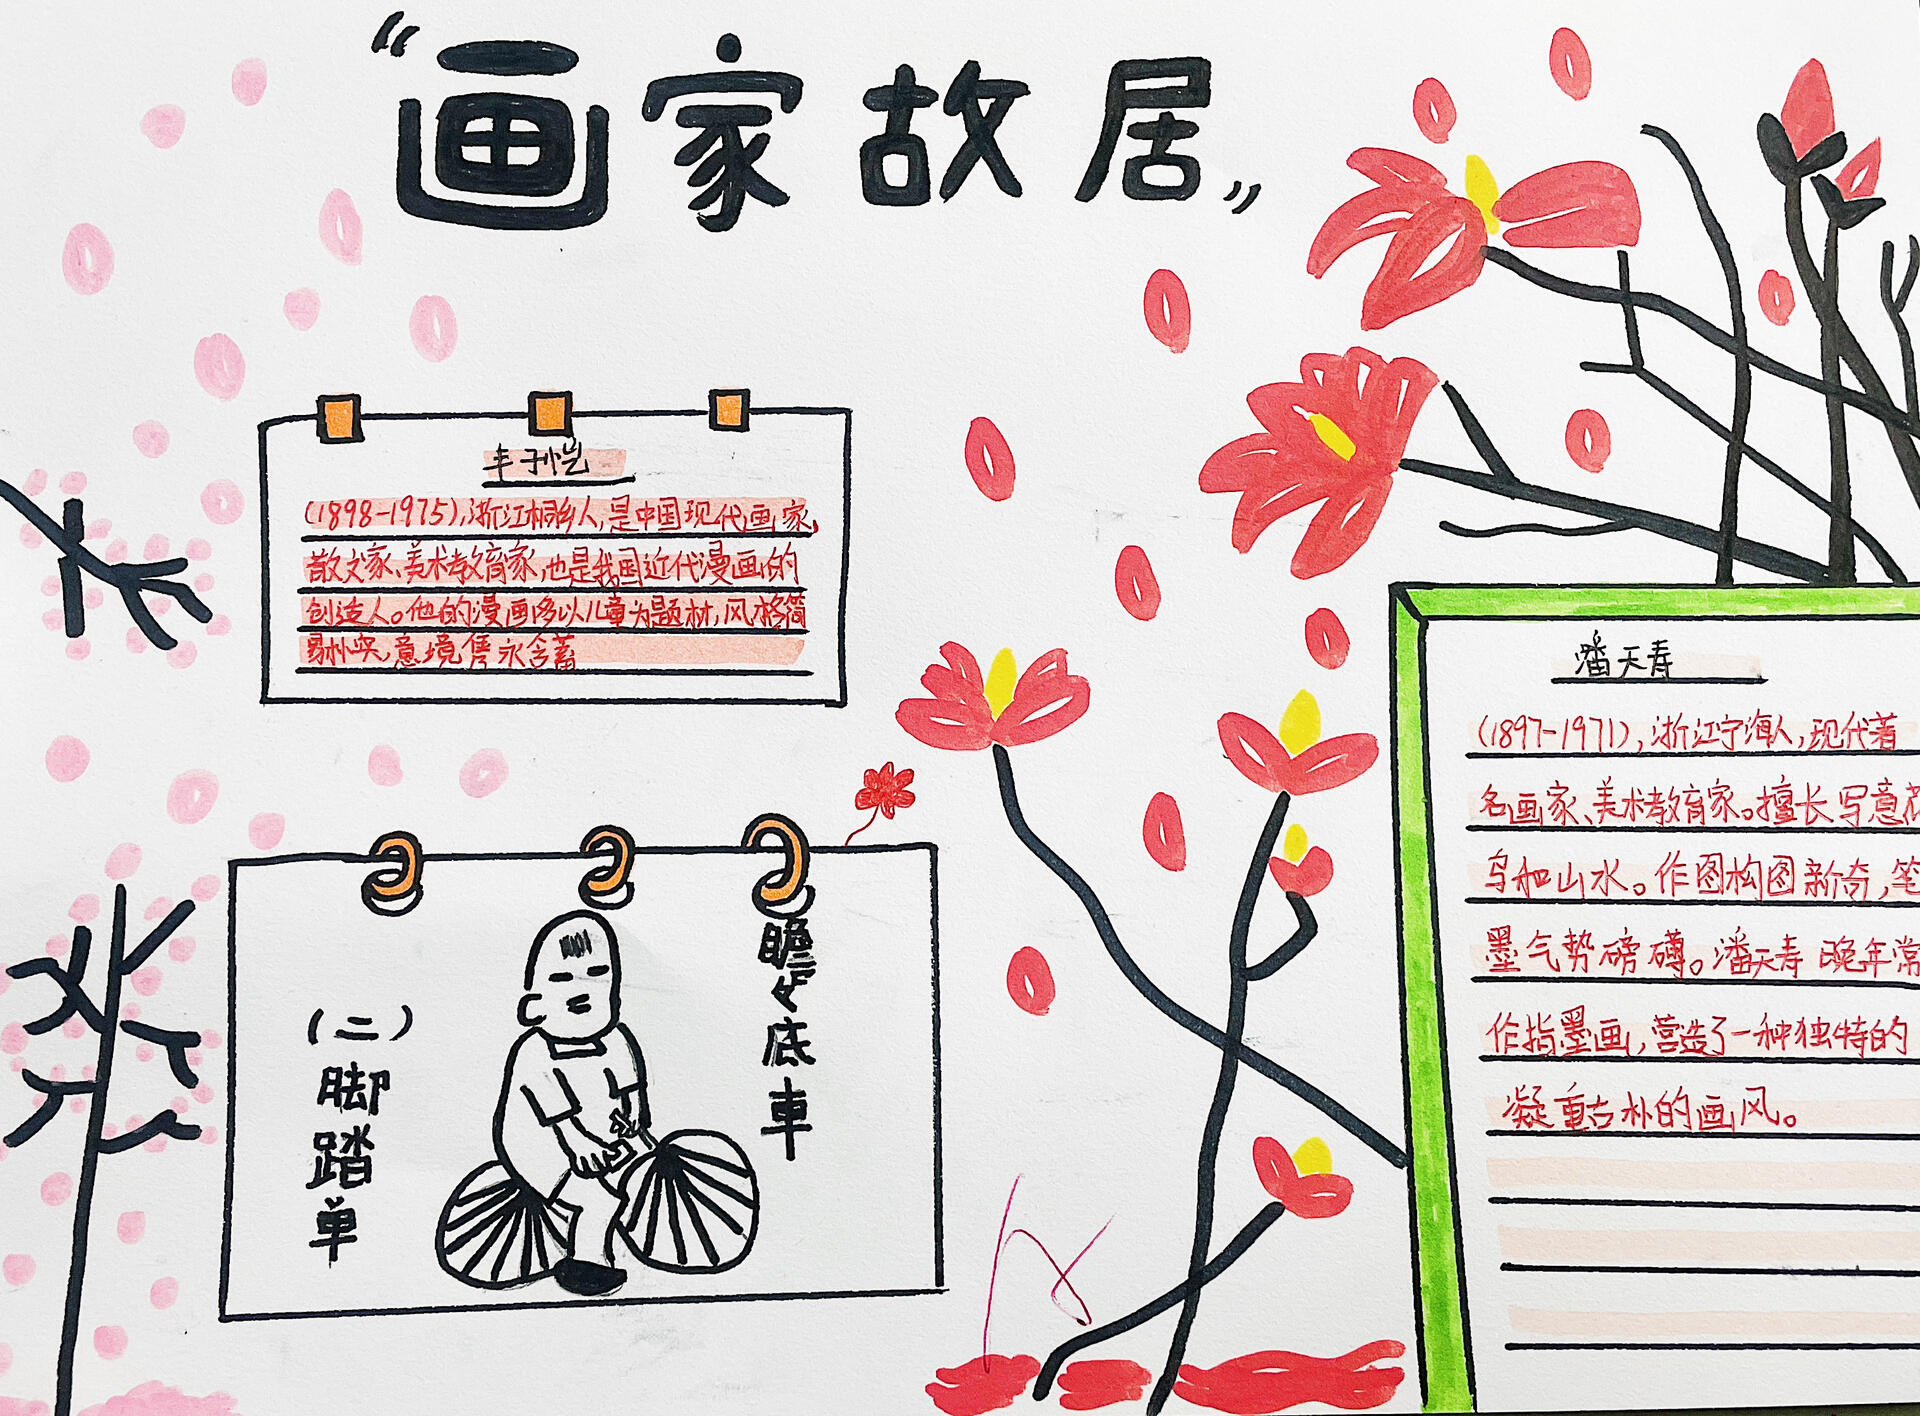 “画家故居”
丰子恺
(1898-1975),浙江桐乡人,是中国现代画家,
散文家、美术教育家,也是我国近代漫画的
创造人。他的漫画多以儿童为题材,风格简
易朴实,意境隽永含蓄
瞻瞻底車
(二)脚踏单
潘天寿
(1897-1971),浙江宁海人,现代著
名画家、美术教育家。擅长写意花
鸟和山水。作图构图新奇,笔
墨气势磅礴。潘天寿晚年常
作指墨画,营造了一种独特的
凝重古朴的画风。